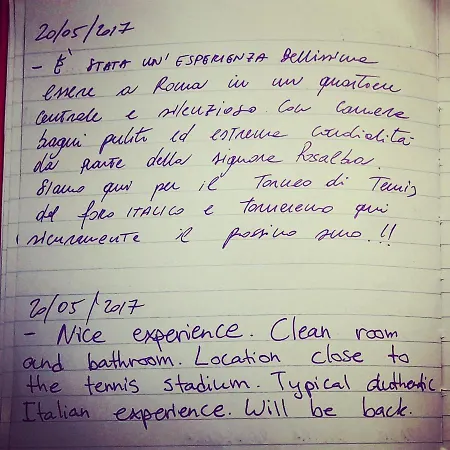 20/05/2017
- È STATA UN'ESPERIENZA Bellissima
essere a Roma in un quartiere
centrale e silenzioso. Con camere
bagni puliti ed estrema cordialità
da parte della signora Rosalba.
Siamo qui per il Torneo di Tennis
del foro ITALICO e torneremo qui
sicuramente il prossimo anno.!!
20/05/2017
- Nice experience. Clean room
and bathroom. Location close to
the tennis stadium. Typical authentic
Italian experience. Will be back.